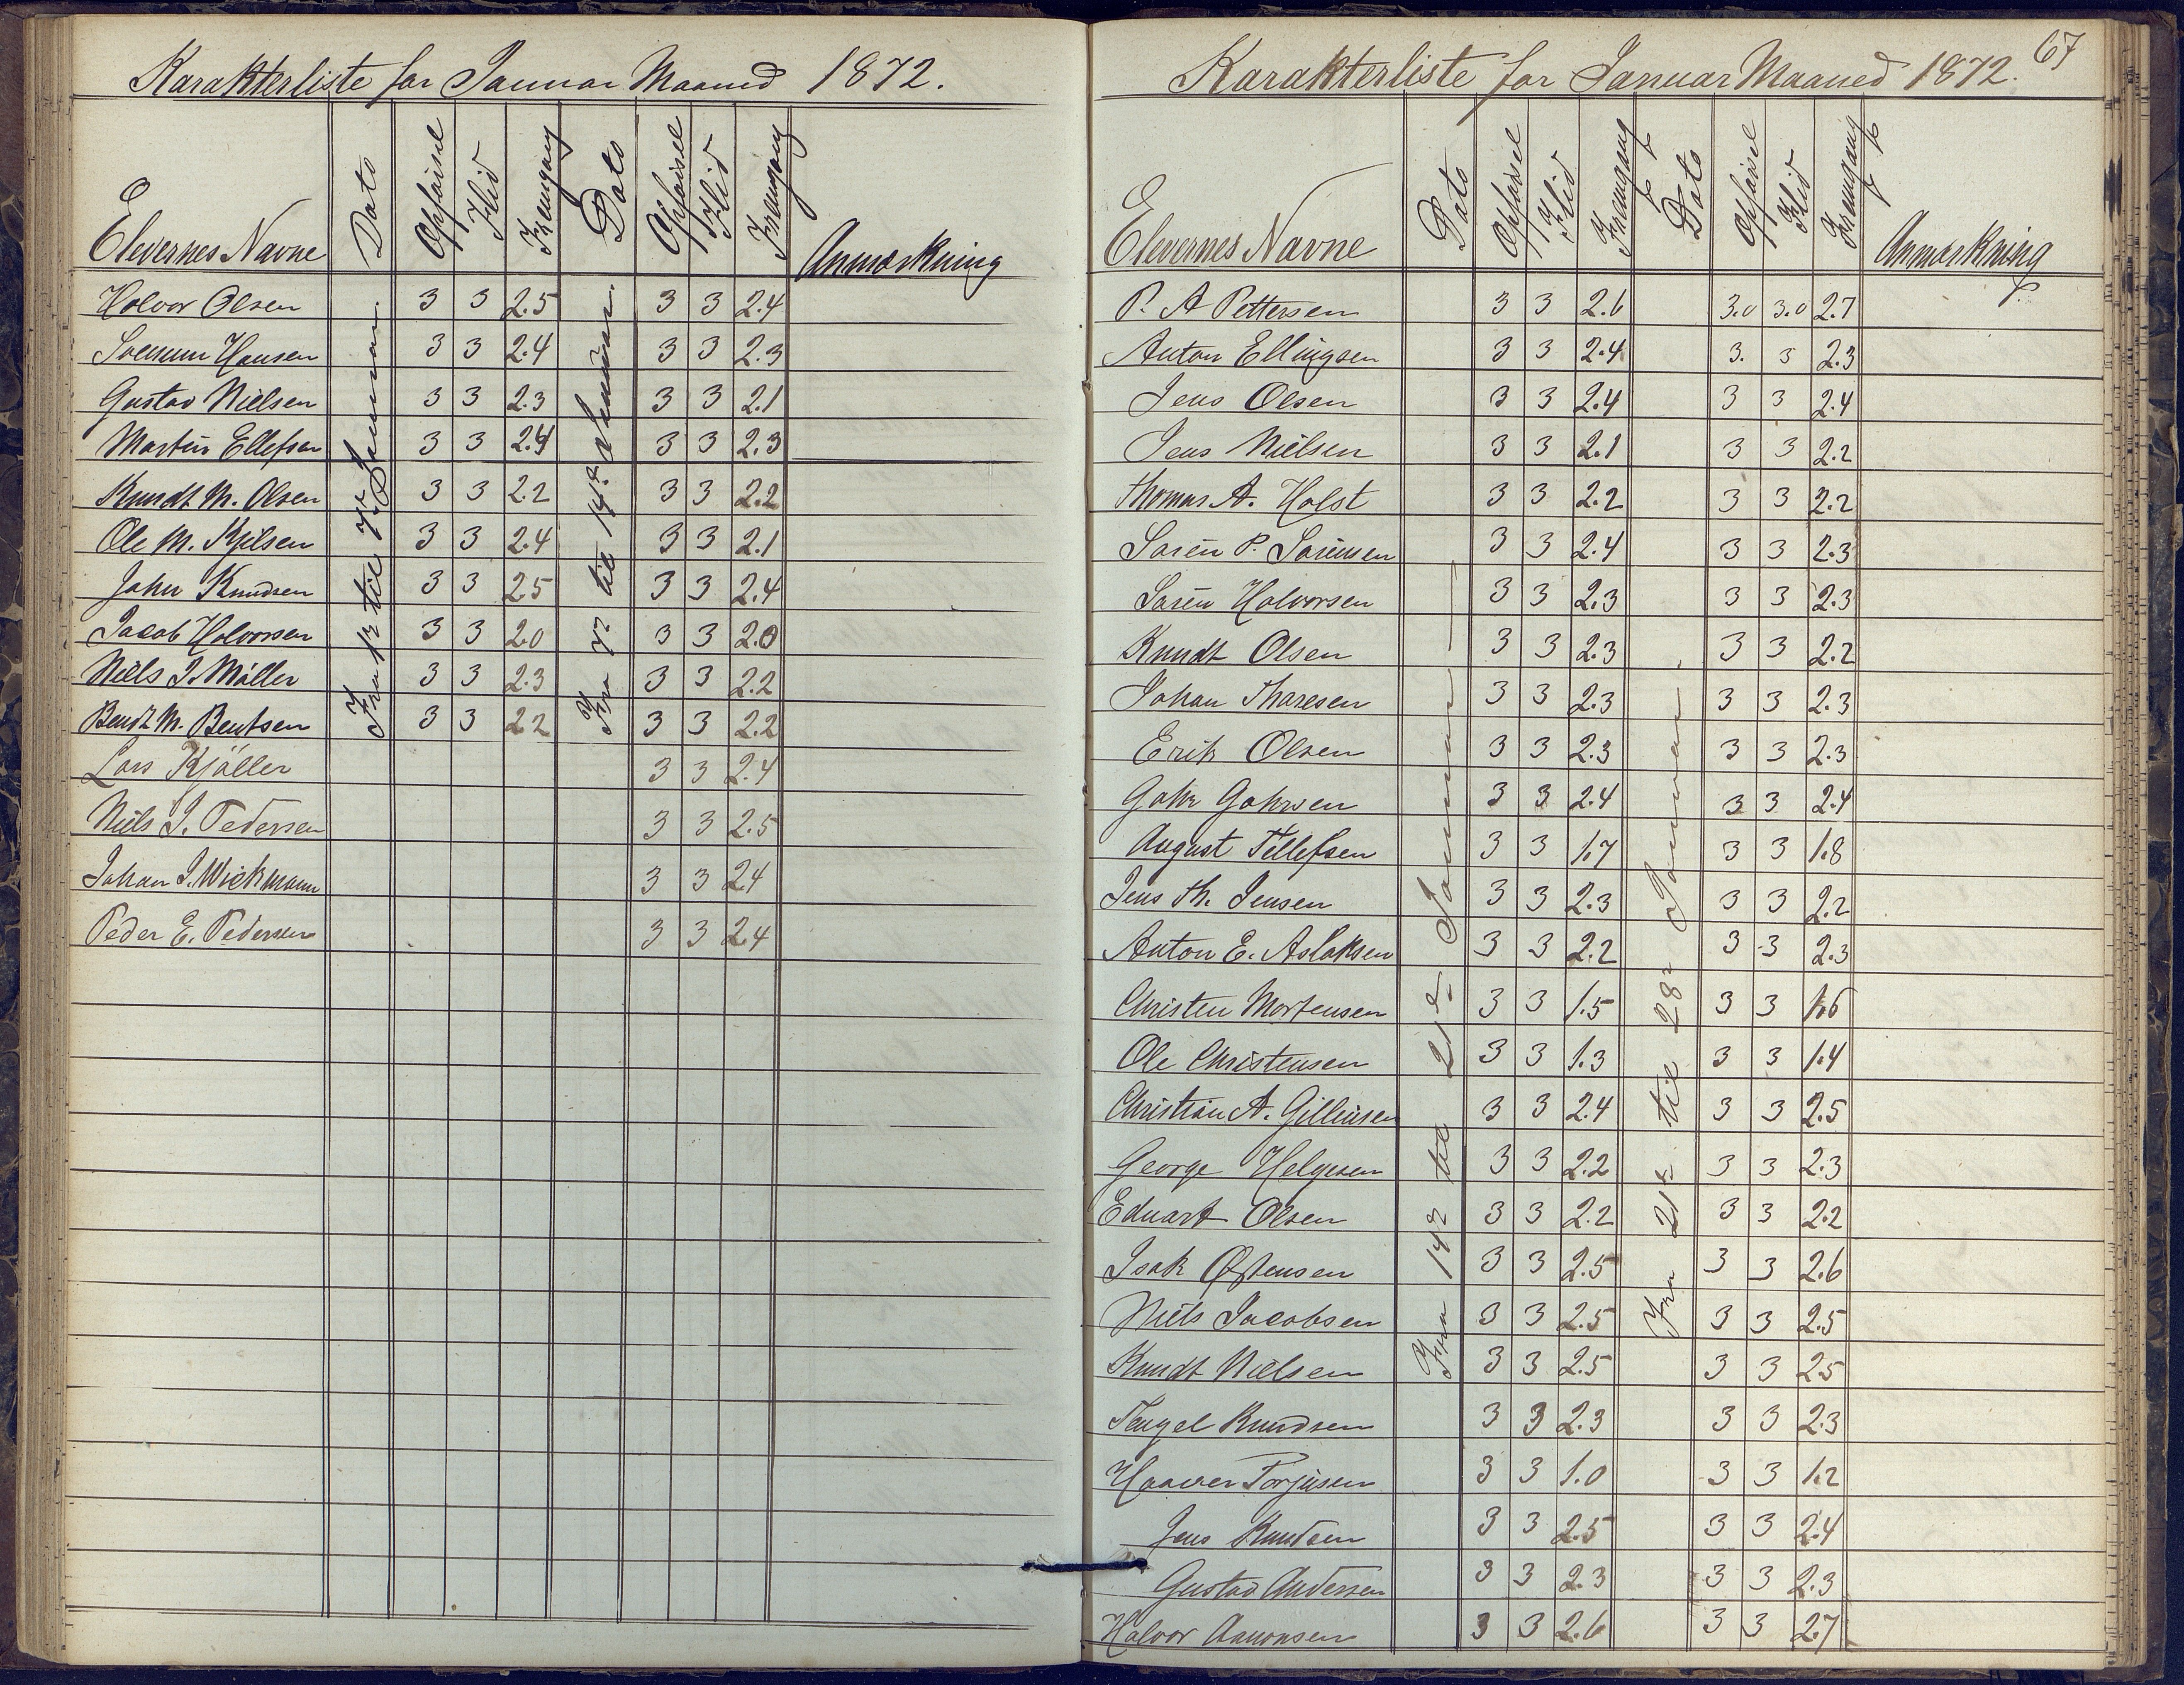 Karakterliste for Januar Maaned 1872.
Elevernes Navne Dato Opførsel Flid Fremgang Dato Opførsel Flid Fremgang Anmærkning
Fra 1ste til 7de Januar.
Fra 7de til 14de Januar.
Halvor Olsen 3 3 2.5 3 3 2.4
Hansen 3 3 2.4 3 3 2.3
Gustav Nielsen 3 3 2.3 3 3 2.1
Martin Ellefsen 3 3 2.4 3 3 2.3
Knudt M. Olsen 3 3 2.2 3 3 2.2
Ole M. Kjelsen 3 3 2.4 3 3 2.1
John Knudsen 3 3 2.5 3 3 2.4
Jacob Halvorsen 3 3 2.0 3 3 2.0
Niels J. Møller 3 3 2.3 3 3 2.2
Bendt M. Bentsen 3 3 2.2 3 3 2.2
Lars Kjøller 3 3 2.4
Niels J. Pedersen 3 3 2.5
Johan J. Wickmann 3 3 2.4
Peder E. Pedersen 3 3 2.4
67
Karakterliste for Januar Maaned 1872.
Elevernes Navne Dato Opførsel Flid Fremgang Dato Opførsel Flid Fremgang Anmærkning
Fra 14de til 21de Januar
Fra 21de til 28de Januar.
P. A Pettersen 3 3 2.6 3.0 3.0 2.7
Anton Ellingsen 3 3 2.4 3. 3 2.3
Jens Olsen 3 3 2.4 3 3 2.4
Jens Nielsen 3 3 2.1 3 3 2.2
Thomas A. Holst 3 3 2.2 3 3 2.2
Søren P. Sørensen 3 3 2.4 3 3 2.3
Søren Halvorsen 3 3 2.3 3 3 2.3
Knudt Olsen 3 3 2.3 3 3 2.2
Johan Tharesen 3 3 2.3 3 3 2.3
Erik Olsen 3 3 2.3 3 3 2.3
3 3 2.4 3 3 2.4
August Tellefsen 3 3 1.7 3 3 1.8
Jens Th. Jensen 3 3 2.3 3 3 2.2
Anton E. Aslaksen 3 3 2.2 3 3 2.3
Christen Mortensen 3 3 1.5 3 3 1.6
Ole Christensen 3 3 1.3 3 3 1.4
Christian A. Gilleusen 3 3 2.4 3 3 2.5
George Helgesen 3 3 2.2 3 3 2.3
Eduart Olsen 3 3 2.2 3 3 2.2
Isak Østensen 3 3 2.5 3 3 2.6
Niels Jacobsen 3 3 2.5 3 3 2.5
Knudt Nielsen 3 3 2.5 3 3 2.5
Tengel Knudsen 3 3 2.3 3 3 2.3
Haaver Torjusen 3 3 1.0 3 3 1.2
Jens Knudsen 3 3 2.5 3 3 2.4
Gustav Andersen 3 3 2.3 3 3 2.3
Halvor Aanonsen 3 3 2.6 3 3 2.7